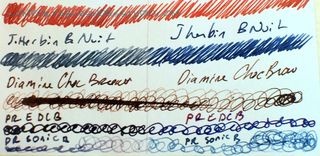 J. Herbin B Nuit J Herbin B Nuit
Diamine Choc Brown Diamine Choc Brow
PR EDCB PR EDCB
PR SONIC R PR SONIC R